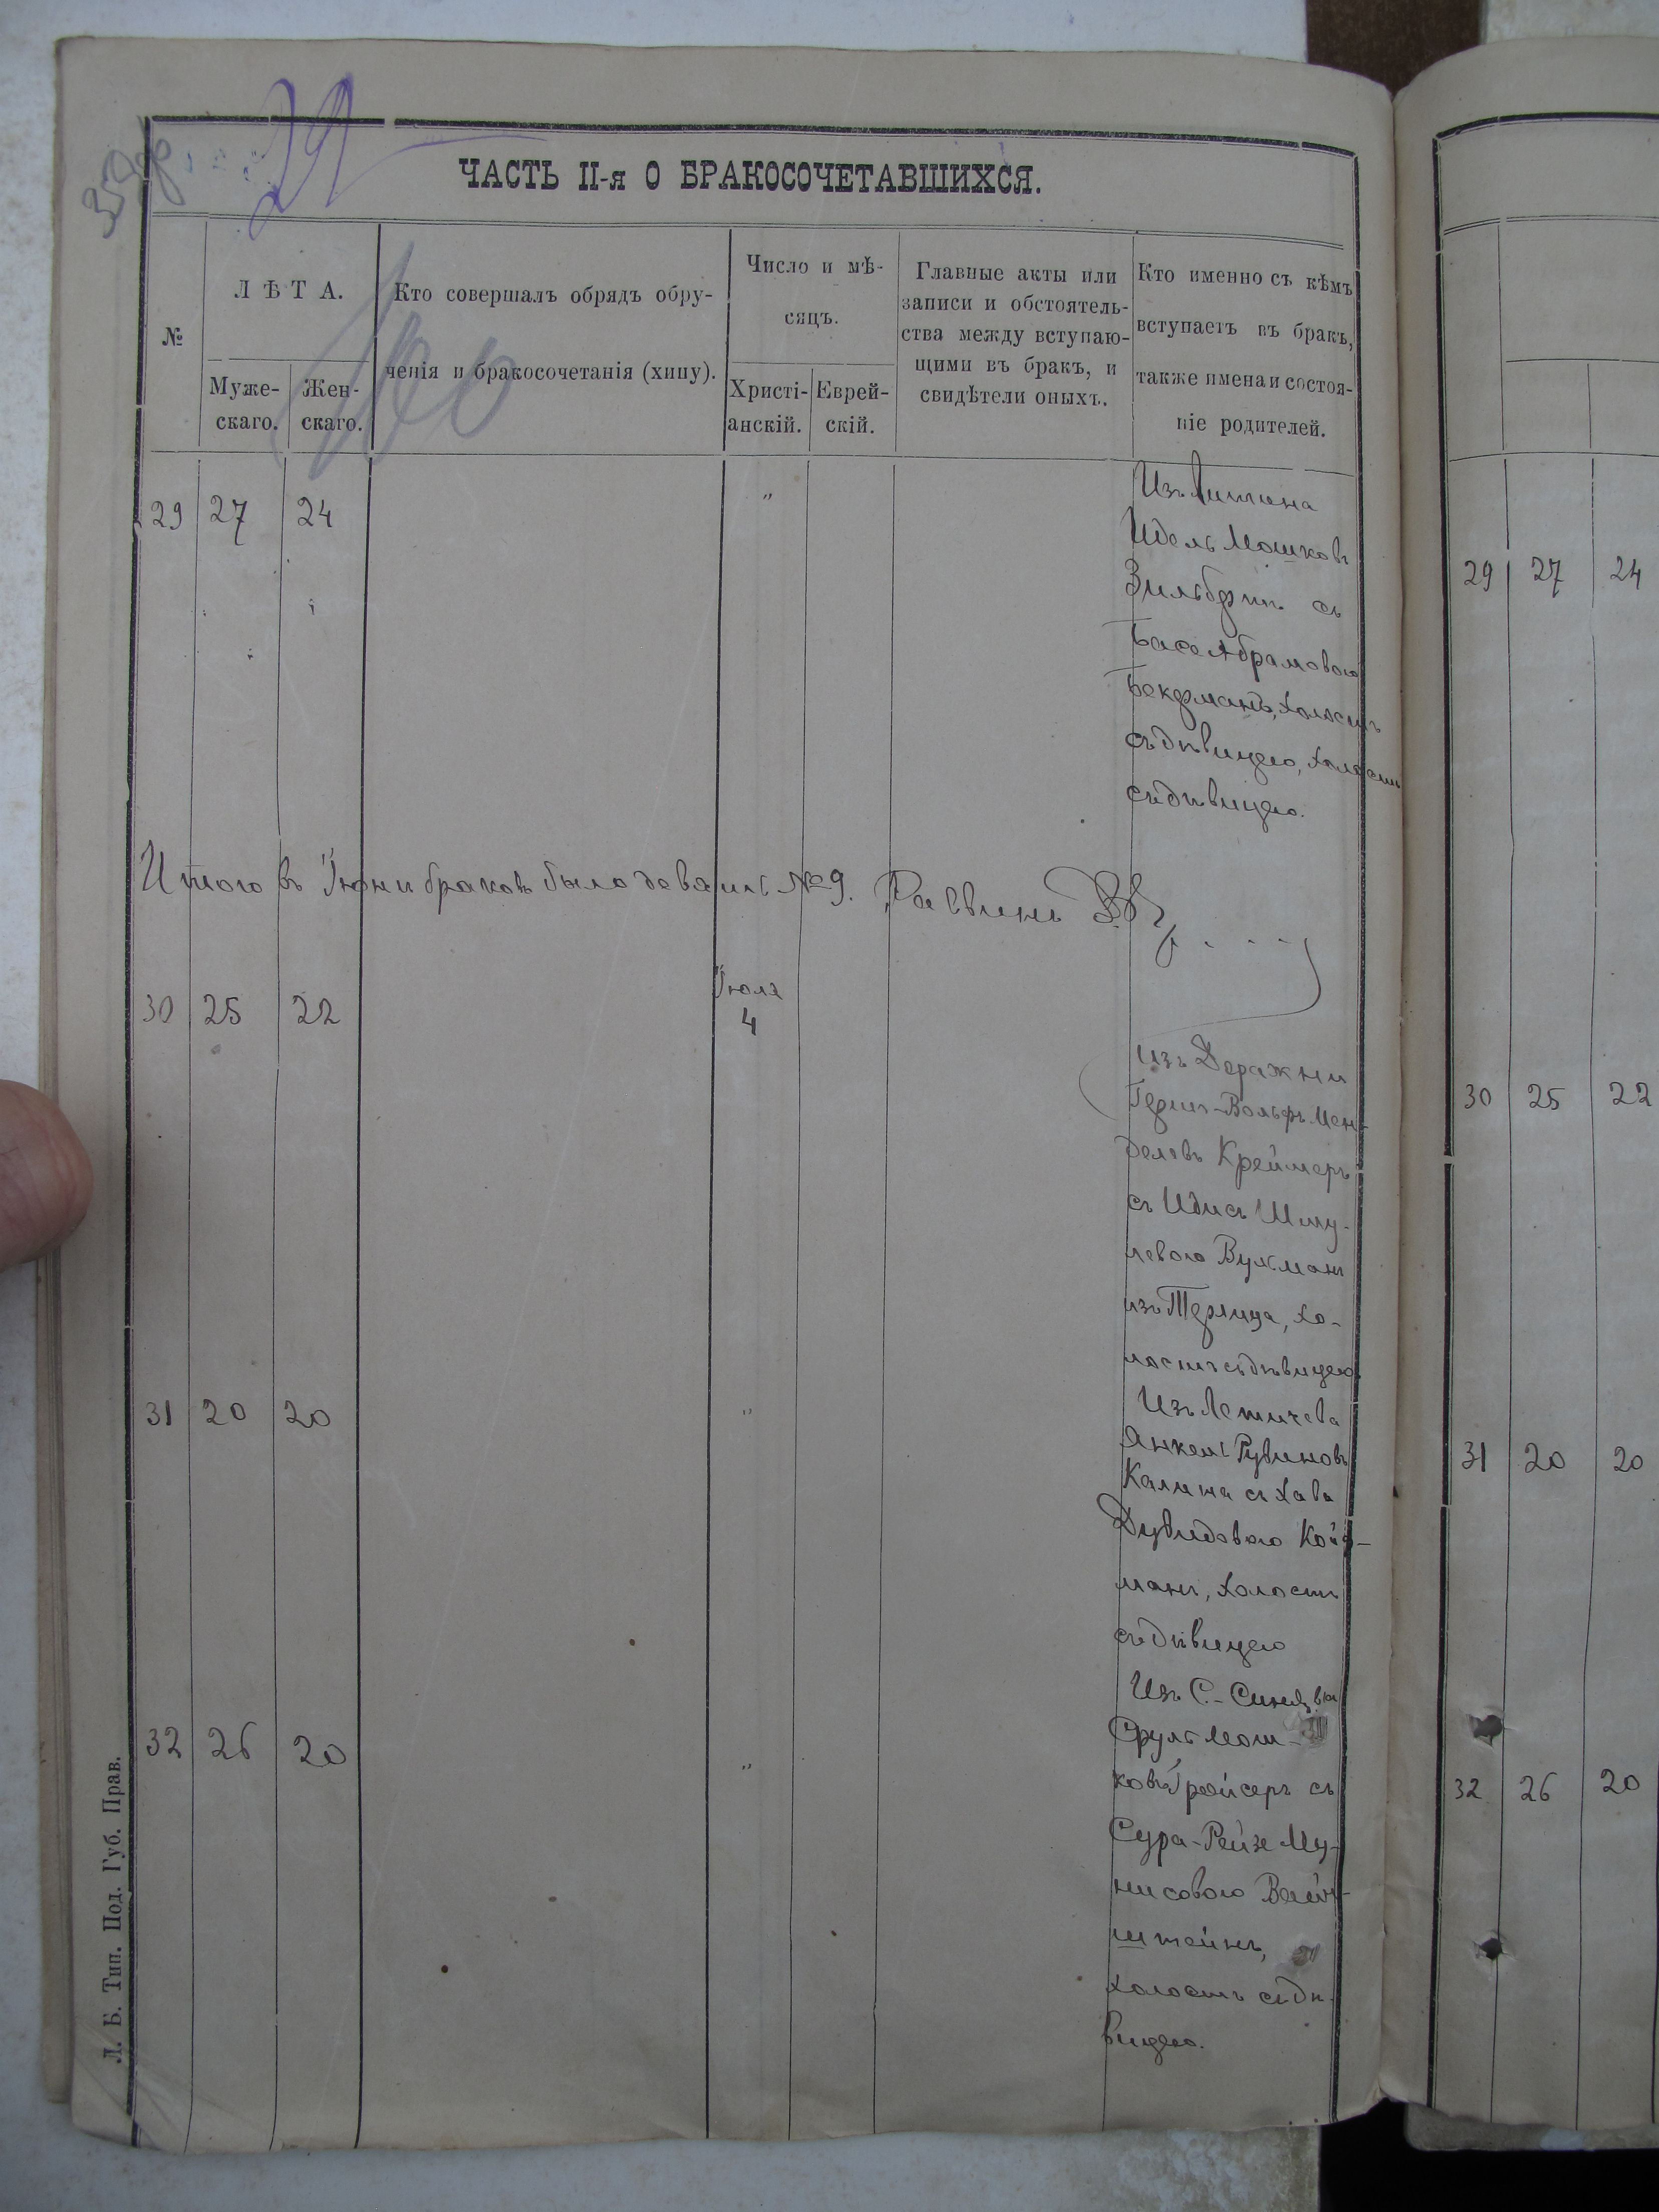 29
ЧАСТЬ II-я О БРАКОСОЧЕТАВШИХСЯ.
№
ЛѢТА.
Муже-
скаго.
Жен-
скаго.
Кто совершалъ обрядъ обру-
ченія и бракосочетанія (хипу).
Число и мѣ-
сяцъ.
Христі-
анскій.
Еврей-
скій.
Главные акты или
записи и обстоятель-
ства между вступаю-
щими въ бракъ, и
свидѣтели оныхъ.
Кто именно съ кѣмъ
вступаетъ въ бракъ,
также имена и состоя-
ніе родителей.
29 27 24 "
Изъ Литина
Идель Мошковъ
съ
Бася Абрамовою
холостъ
съ дѣвицею, холостъ
съ дѣвицею.
Итого въ Іюни браковъ было девять №9. Раввинъ
30 25 22 Іюля
4
изъ Деражни
Герш-Вольфъ Мен-
делевъ Креймеръ
съ Идись Шму-
левою Вухманъ
изъ Терлица, хо-
лостъ съ дѣвицею
31 20 20 "
Изъ Летичева
Янкель Рувиновъ
Калина съ Хава
Дувидовою Кой-
манъ, холостъ
съ дѣвицею
32 26 20 "
Изъ С.-Синявы
Сруль Мош-
ковъ Гройсеръ съ
Сура-Рейзе Му-
нисовою Вайн-
штейнъ,
холостъ съ дѣ-
вицею.
Л. Б. Тип. Под. Губ. Прав.
29 27 24
30 25 22
31 20 20
32 26 20